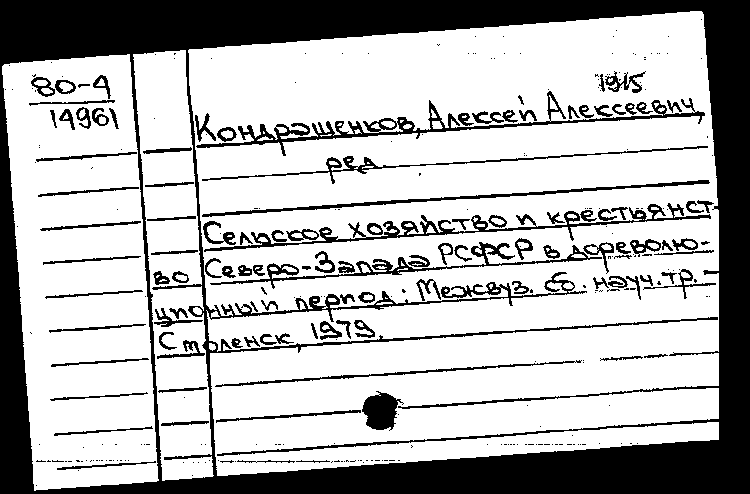 80-4
14961
1915
Кондрашенков, Алексей Алексеевич,
ред.
Сельское хозяйство и крестьянст-
во Северо-Запада РСФСР в дореволю-
ционный период: Межвуз. сб. науч. тр. -
Смоленск, 1979.